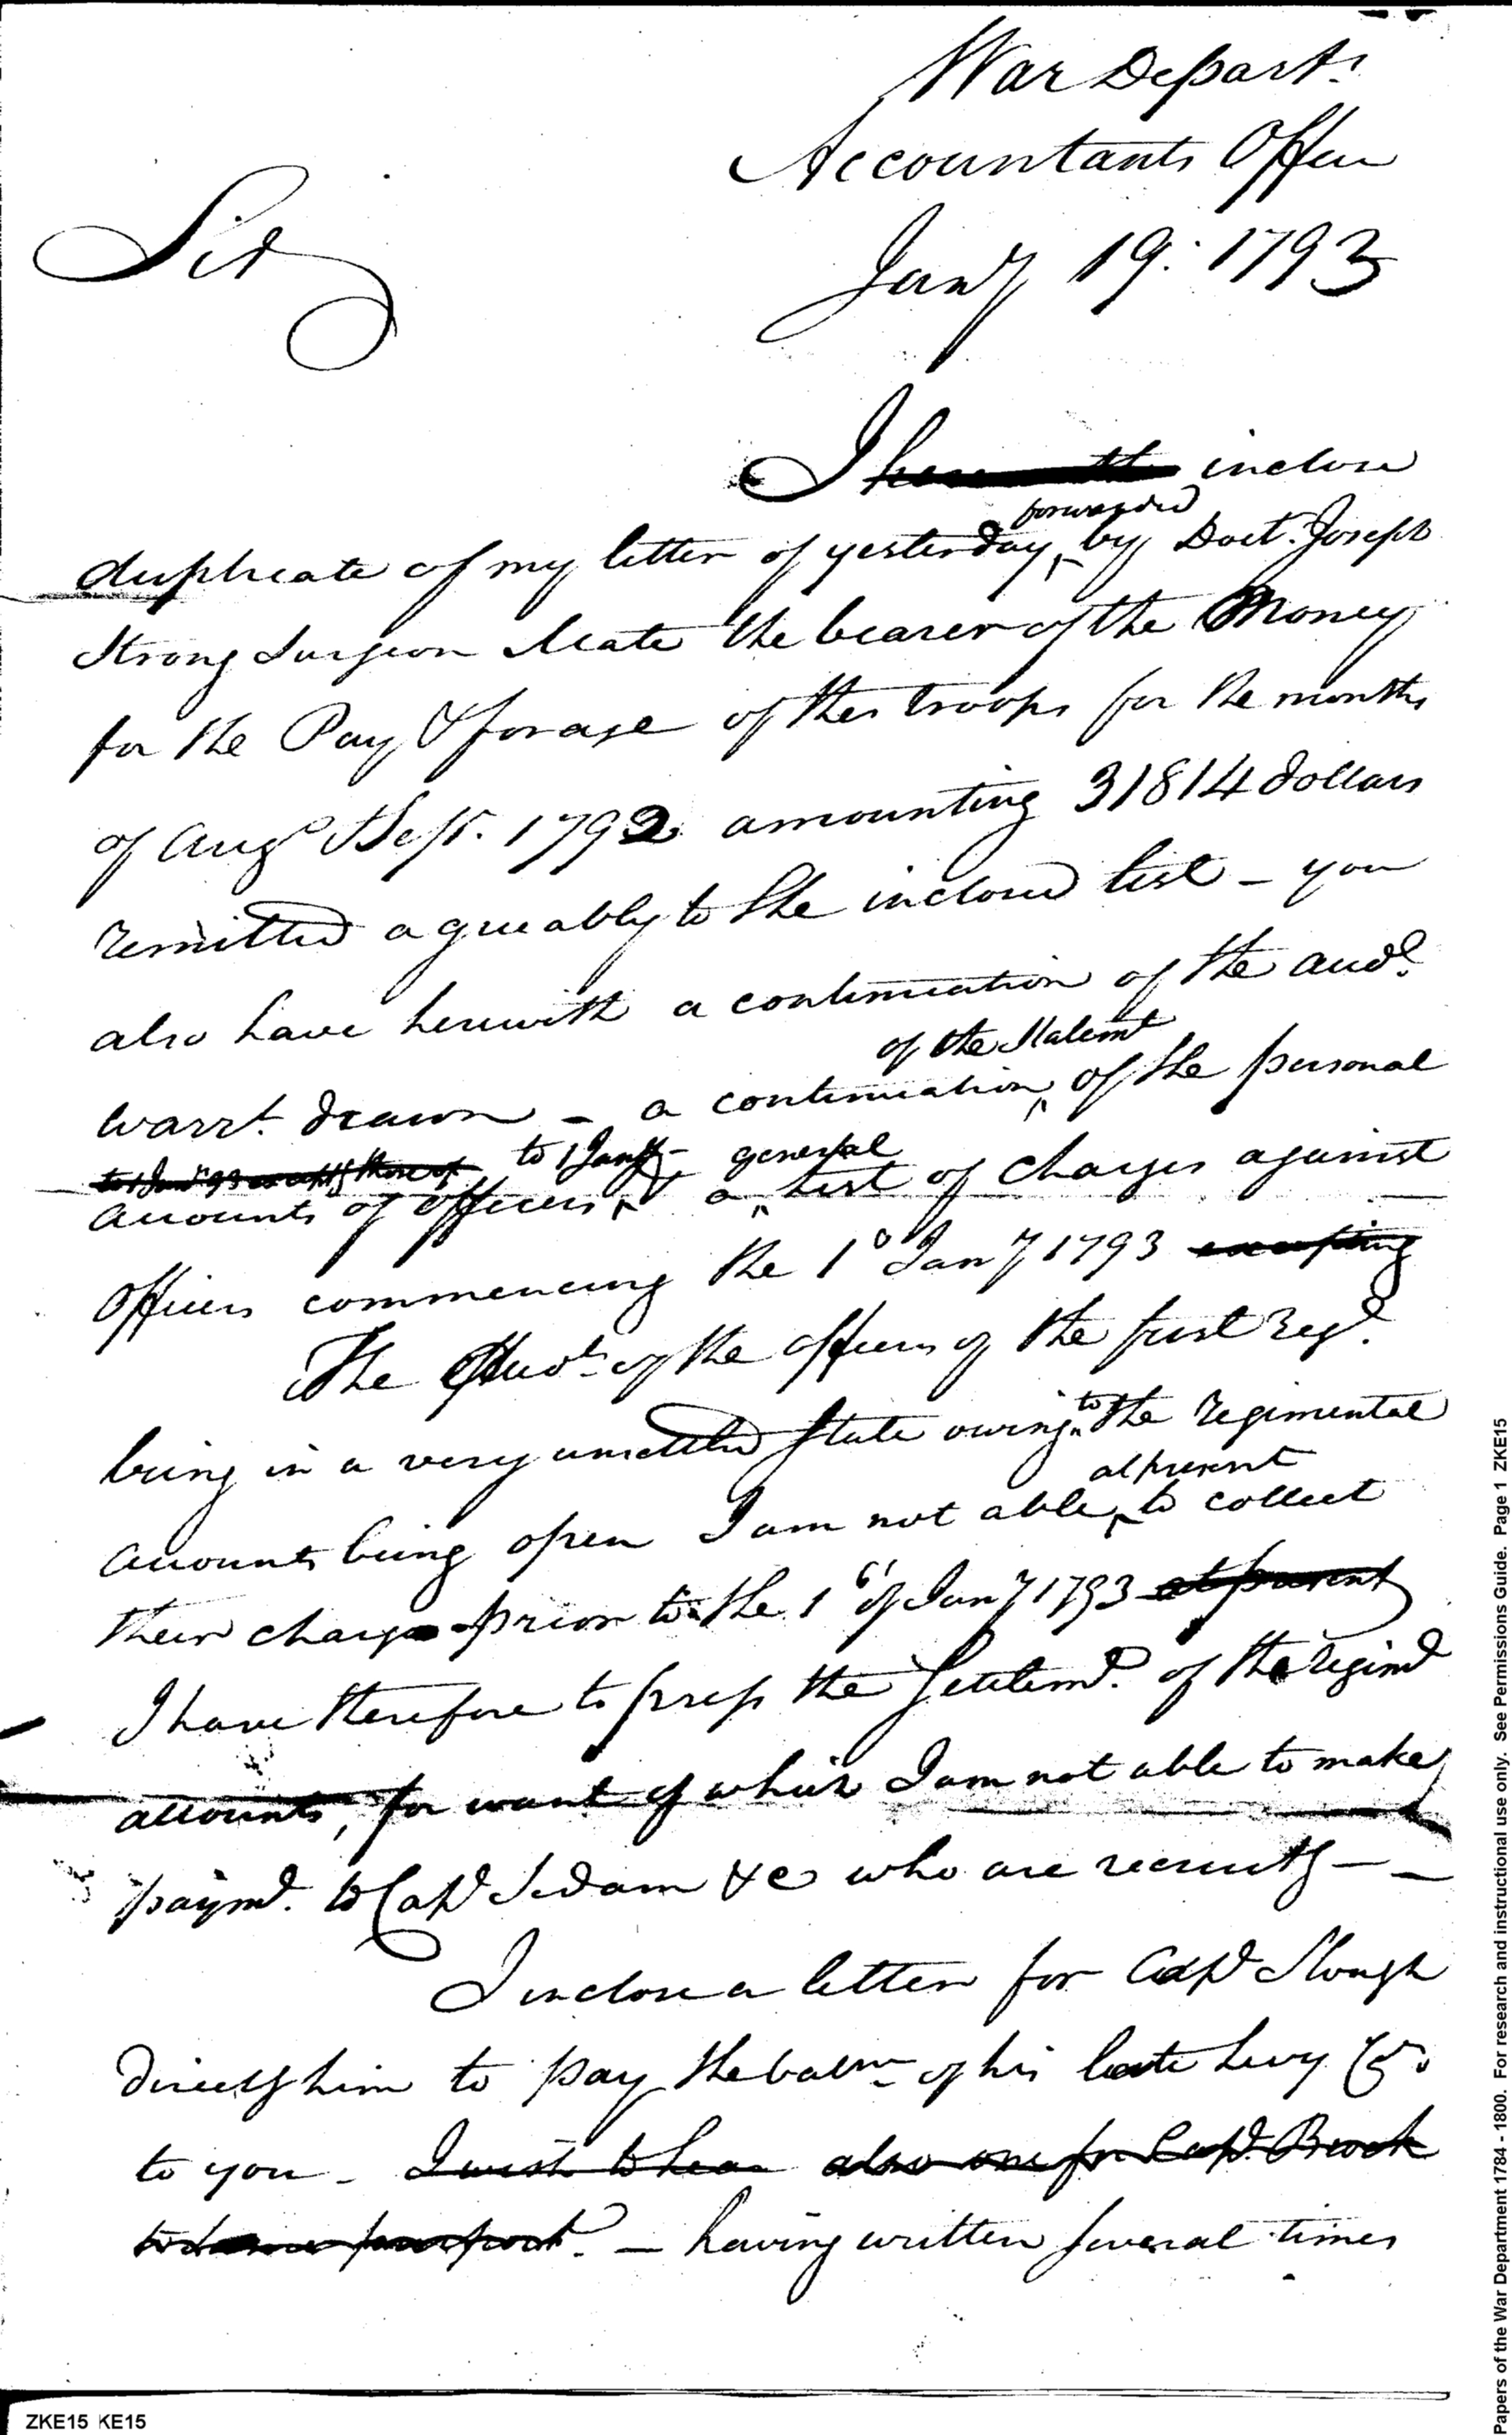 War Depart.
Accountants Office
Sir
Jany 19: 1793
I herewith inclose
forwarded
duplicate of my letter of yesterday by Doct. Joseph
Strong Surgeon Mate the bearer of the Money
for the Pay & forage of the troops for the months
of Augt & Sept. 1792 amounting 31814 dollars
remitted agreeably to the inclosed list - you
also have herewith a continuation of the
of the Statemt
warrt. drawn - a continuation of the personal
to 1 Jany 93 except those of to 1 Jany - general
accounts of officers & a list of charges against
officers commencing the 1o Jany 1793 excepting
The of the officers of the first Regt.
being in a very unsettled state owing to the regimental
at present
accounts being open I am not able to collect
their charges prior to the 1 of Jany 1793 at present
I have therefore to press the Settlemt. of the regimt
accounts, for want of which I am not able to make
paymt. to Capt Sedam &c who are recruitg - -
I inclose a letter for Capt Slough
directg him to pay the balance of his late levy Co
to you - I wish to hear also one for Capt. Brock
to same purport. - having written several times
ZKE15 KE15
Papers of the War Department 1784 - 1800. For research and instructional use only. See Permissions Guide. Page 1 ZKE15